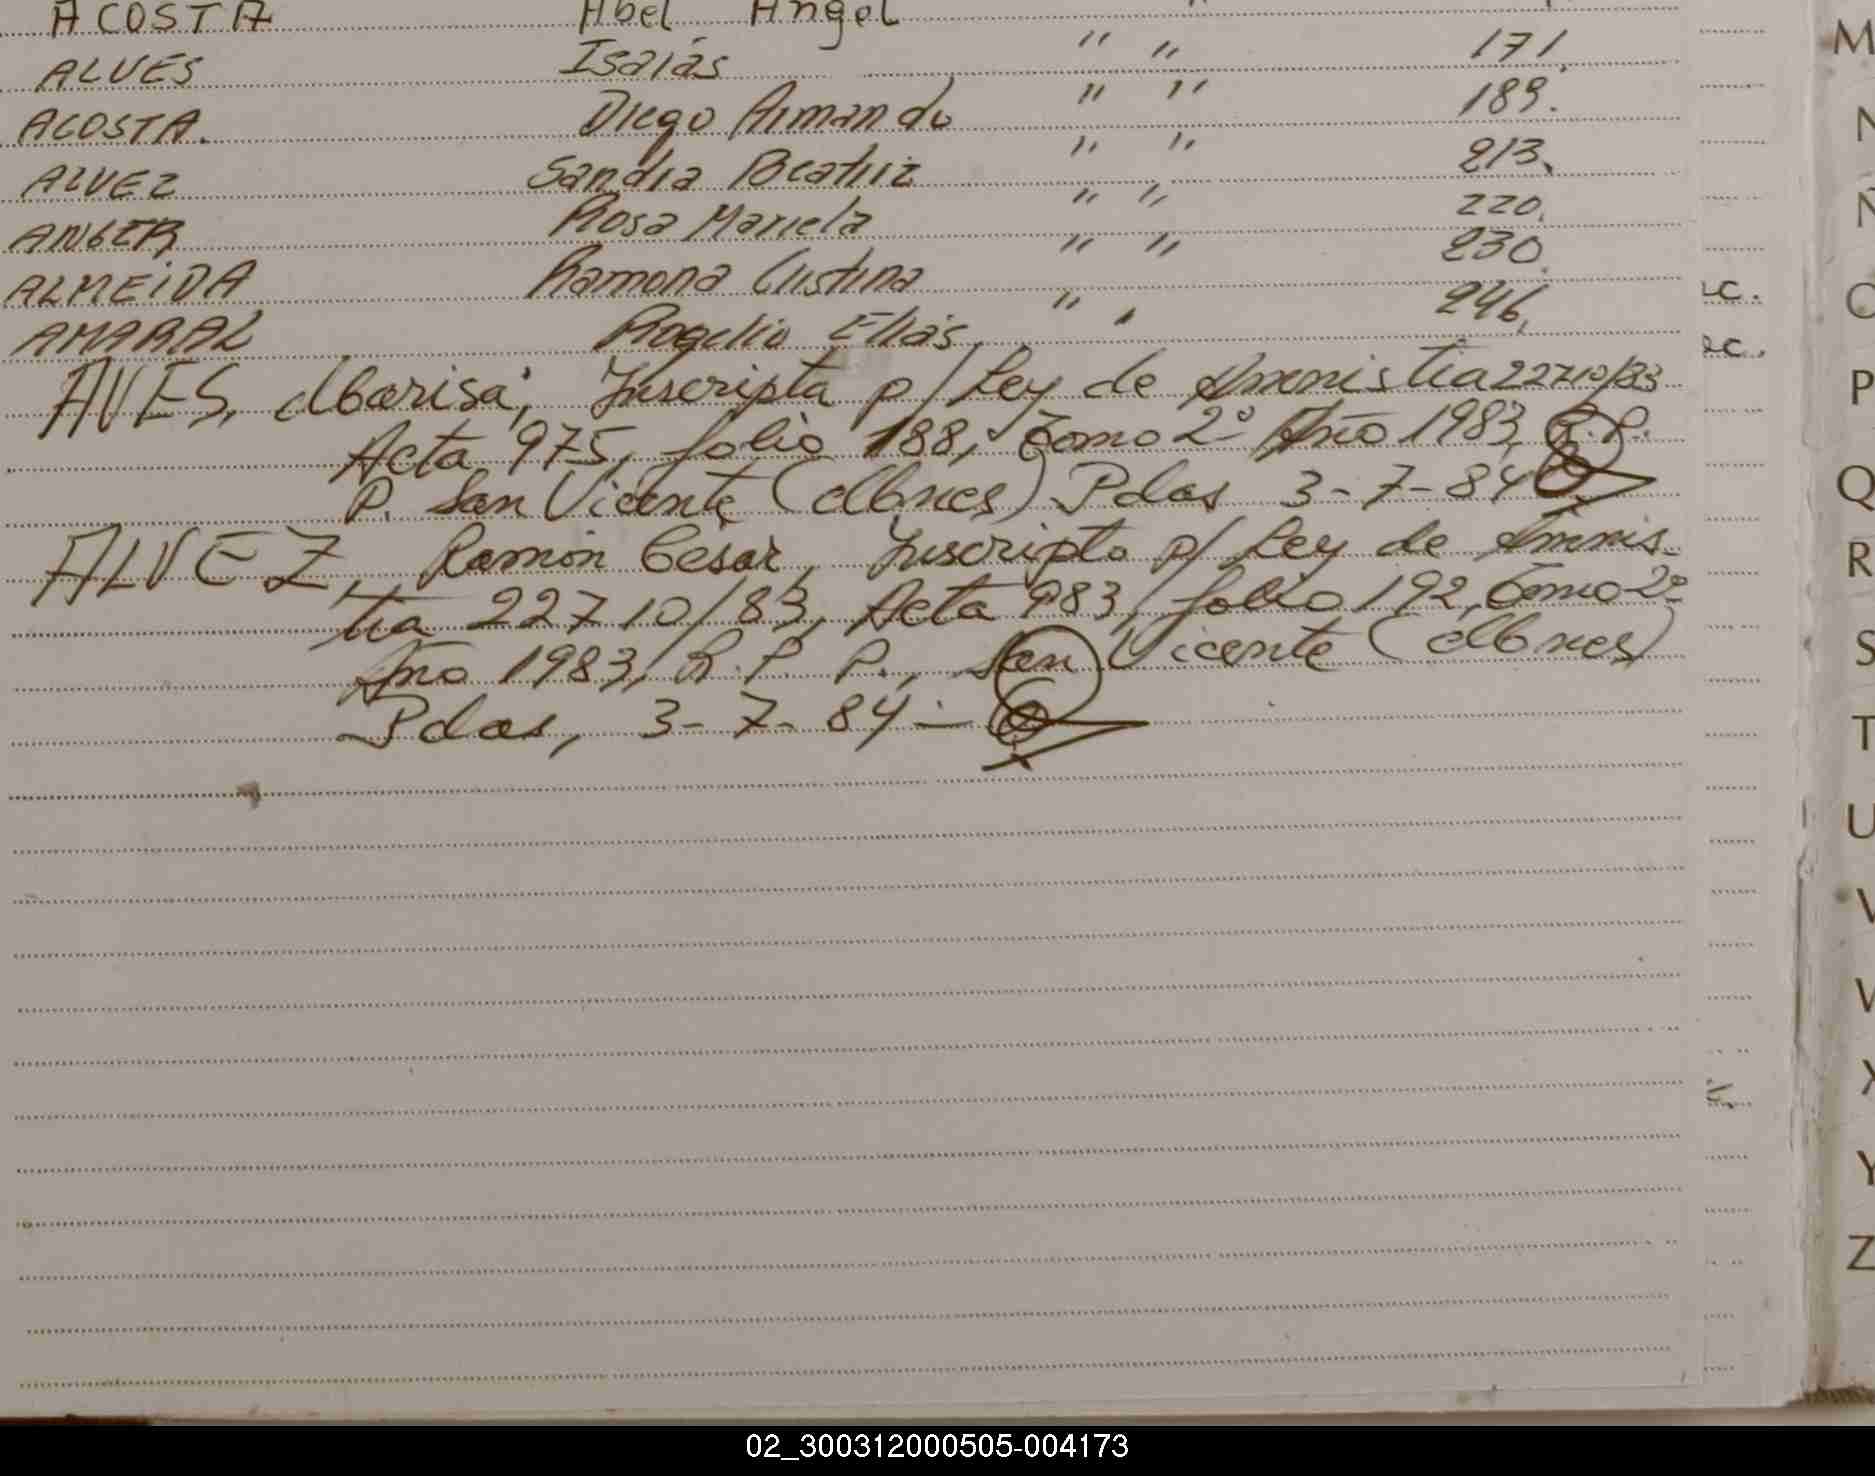 ACOSTA Abel Angel
ALVES Isaías " " 171.
ACOSTA. Diego Armando " " 189.
ALVEZ Sandra Beatriz " " 213.
ANGER Rosa Mariela " " 220.
ALMEIDA Ramona Cristina " " 230.
AMARAL Rogelio Elías " " 246.
AVES, Marisa; Inscripta p/ Ley de Amnistia 22710/83
Acta 975, folio 188, Tomo 2º Año 1983, R.P.
P. San Vicente (Mnes) Pdas 3-7-84
ALVEZ, Ramón César, Inscripto p/ Ley de Amnis-
tia 22710/83, Acta 983, folio 192, Tomo 2º
Año 1983, R.P.P., San Vicente (Mnes)
Pdas, 3-7-84-
M
N
Ñ
O
P
Q
R
S
T
U
V
W
X
Y
Z
02_300312000505-004173